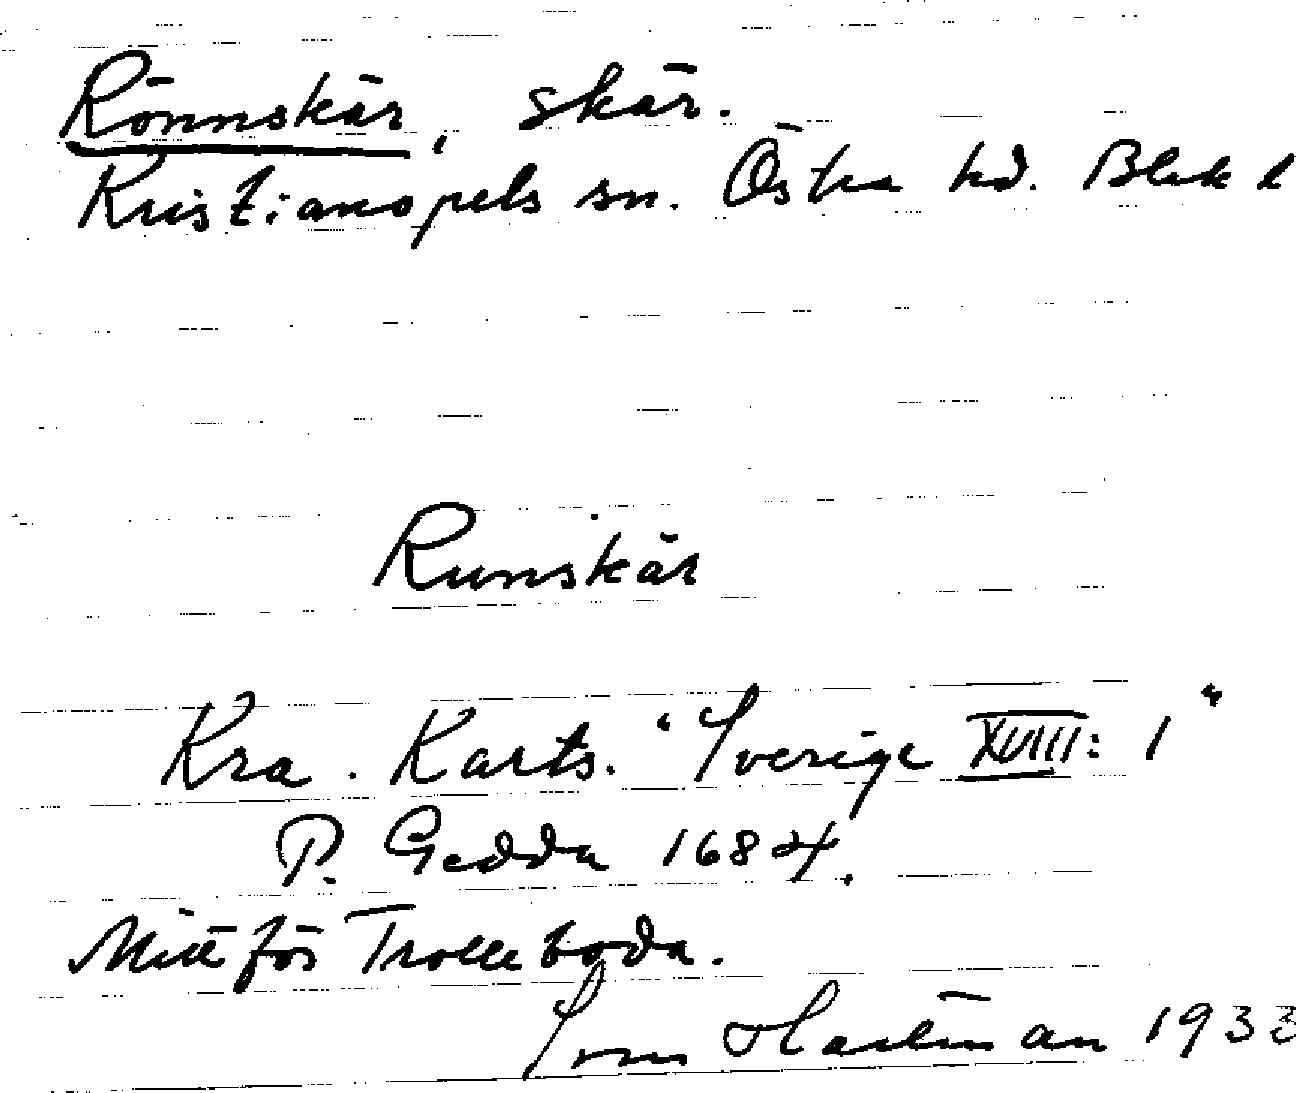 Rönnskär, skär.
Kristianopels sn. Östra hd. Blek l
Runskär
Kra. Karts. "Sverige XVIII: 1"
P. Gedda 1684.
Mitt för Trolleboda.
Sven Hartman 1933